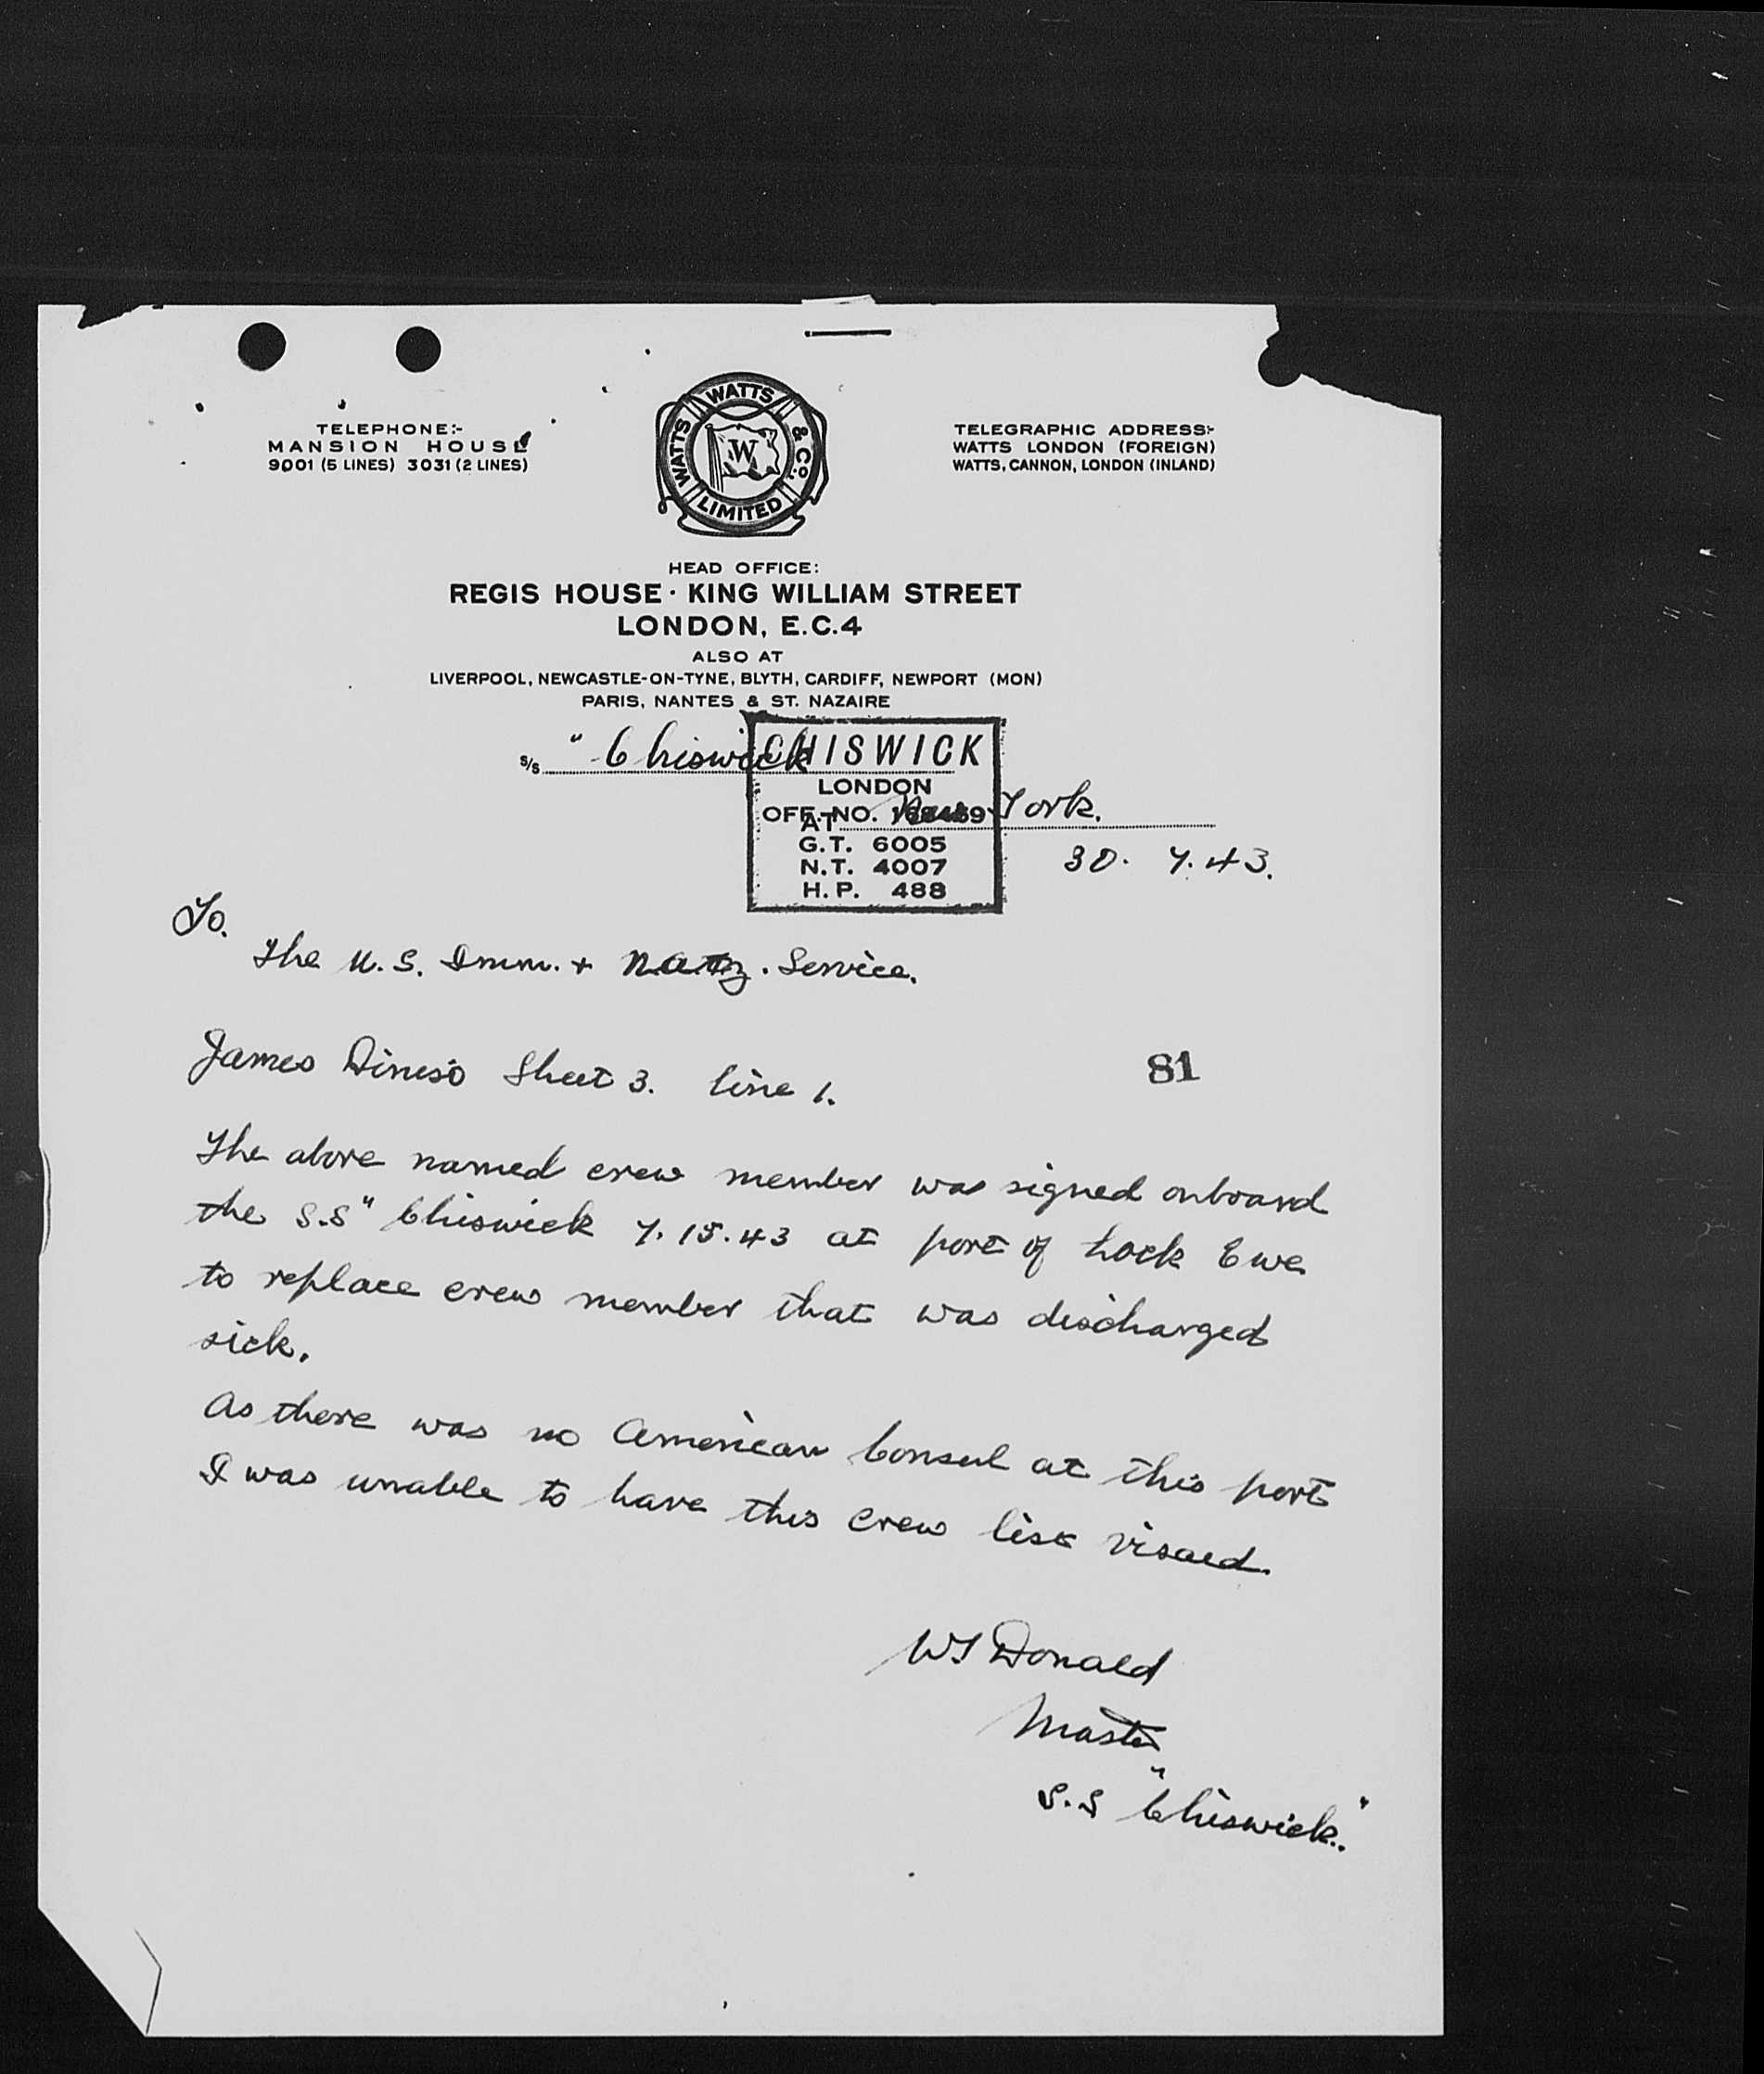 TELEPHONE:-
MANSION HOUSE
9001 (5 LINES) 3031 (2 LINES)
WATTS WATTS & Co., LIMITED
W
TELEGRAPHIC ADDRESS:-
WATTS LONDON (FOREIGN)
WATTS, CANNON, LONDON (INLAND)
HEAD OFFICE:
REGIS HOUSE · KING WILLIAM STREET
LONDON, E.C.4
ALSO AT
LIVERPOOL, NEWCASTLE-ON-TYNE, BLYTH, CARDIFF, NEWPORT (MON)
PARIS, NANTES & ST. NAZAIRE
S/S "Chiswick
CHISWICK
LONDON
OFF. NO.
G.T. 6005
N.T. 4007
H.P. 488
AT New York.
30. 7. 43.
To.
The U.S. Imm. + Natz. Service.
James Sheet 3. line 1.
81
The above named crew member was signed onboard
the S.S "Chiswick 7.15.43 at port of Lock Ewe
to replace crew member that was discharged
sick.
As there was no American Consul at this port
I was unable to have this crew list visaed.
Donald
Master
S.S "Chiswick."